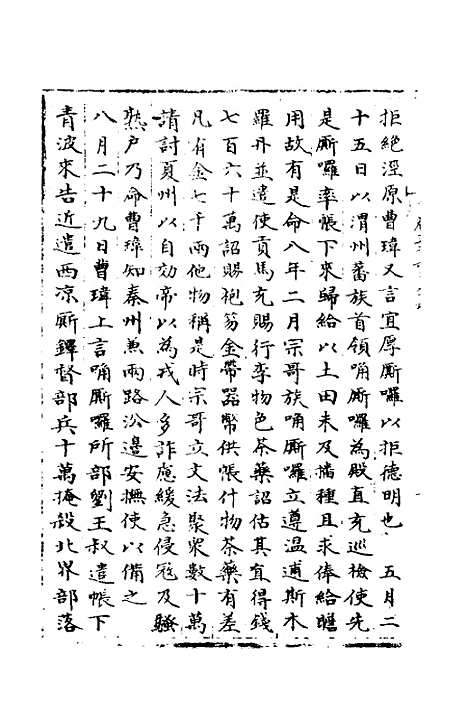 拒絕涇原曹瑋又言宜厚厮囉以拒德明也　五月二
十五日以渭州蕃族首領唃厮囉為殿直充巡檢使先
是厮囉率帳下來歸給以土田未及播種且求俸給贍
用故有是命八年二月宗哥族唃厮囉立遵温逋斯木
羅丹並遣使貢馬充賜行李物色茶藥詔估其直得錢
七百六十萬詔賜袍笏金帶器幣供帳什物茶藥有差
凡有金七千兩他物稱是時宗哥立文法聚衆數十萬
請討夏州以自効帝以為戎人多詐慮緩急侵寇及騷
熟户乃命曹瑋知秦州兼兩路㳂邊安撫使以備之
八月二十九日曹瑋上言唃厮囉所部劉王叔遣帳下
青波來告近遣西凉厮鐸督部兵十萬掩殺北界部落